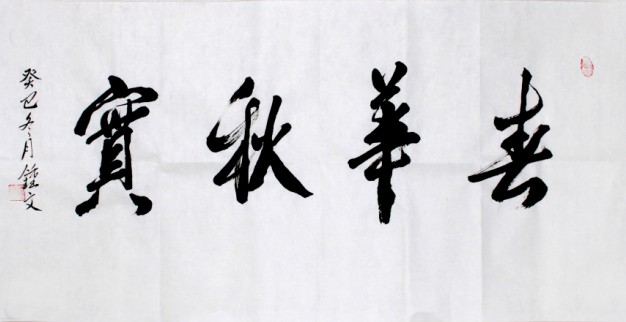 春華秋實
癸巳冬月鍾文